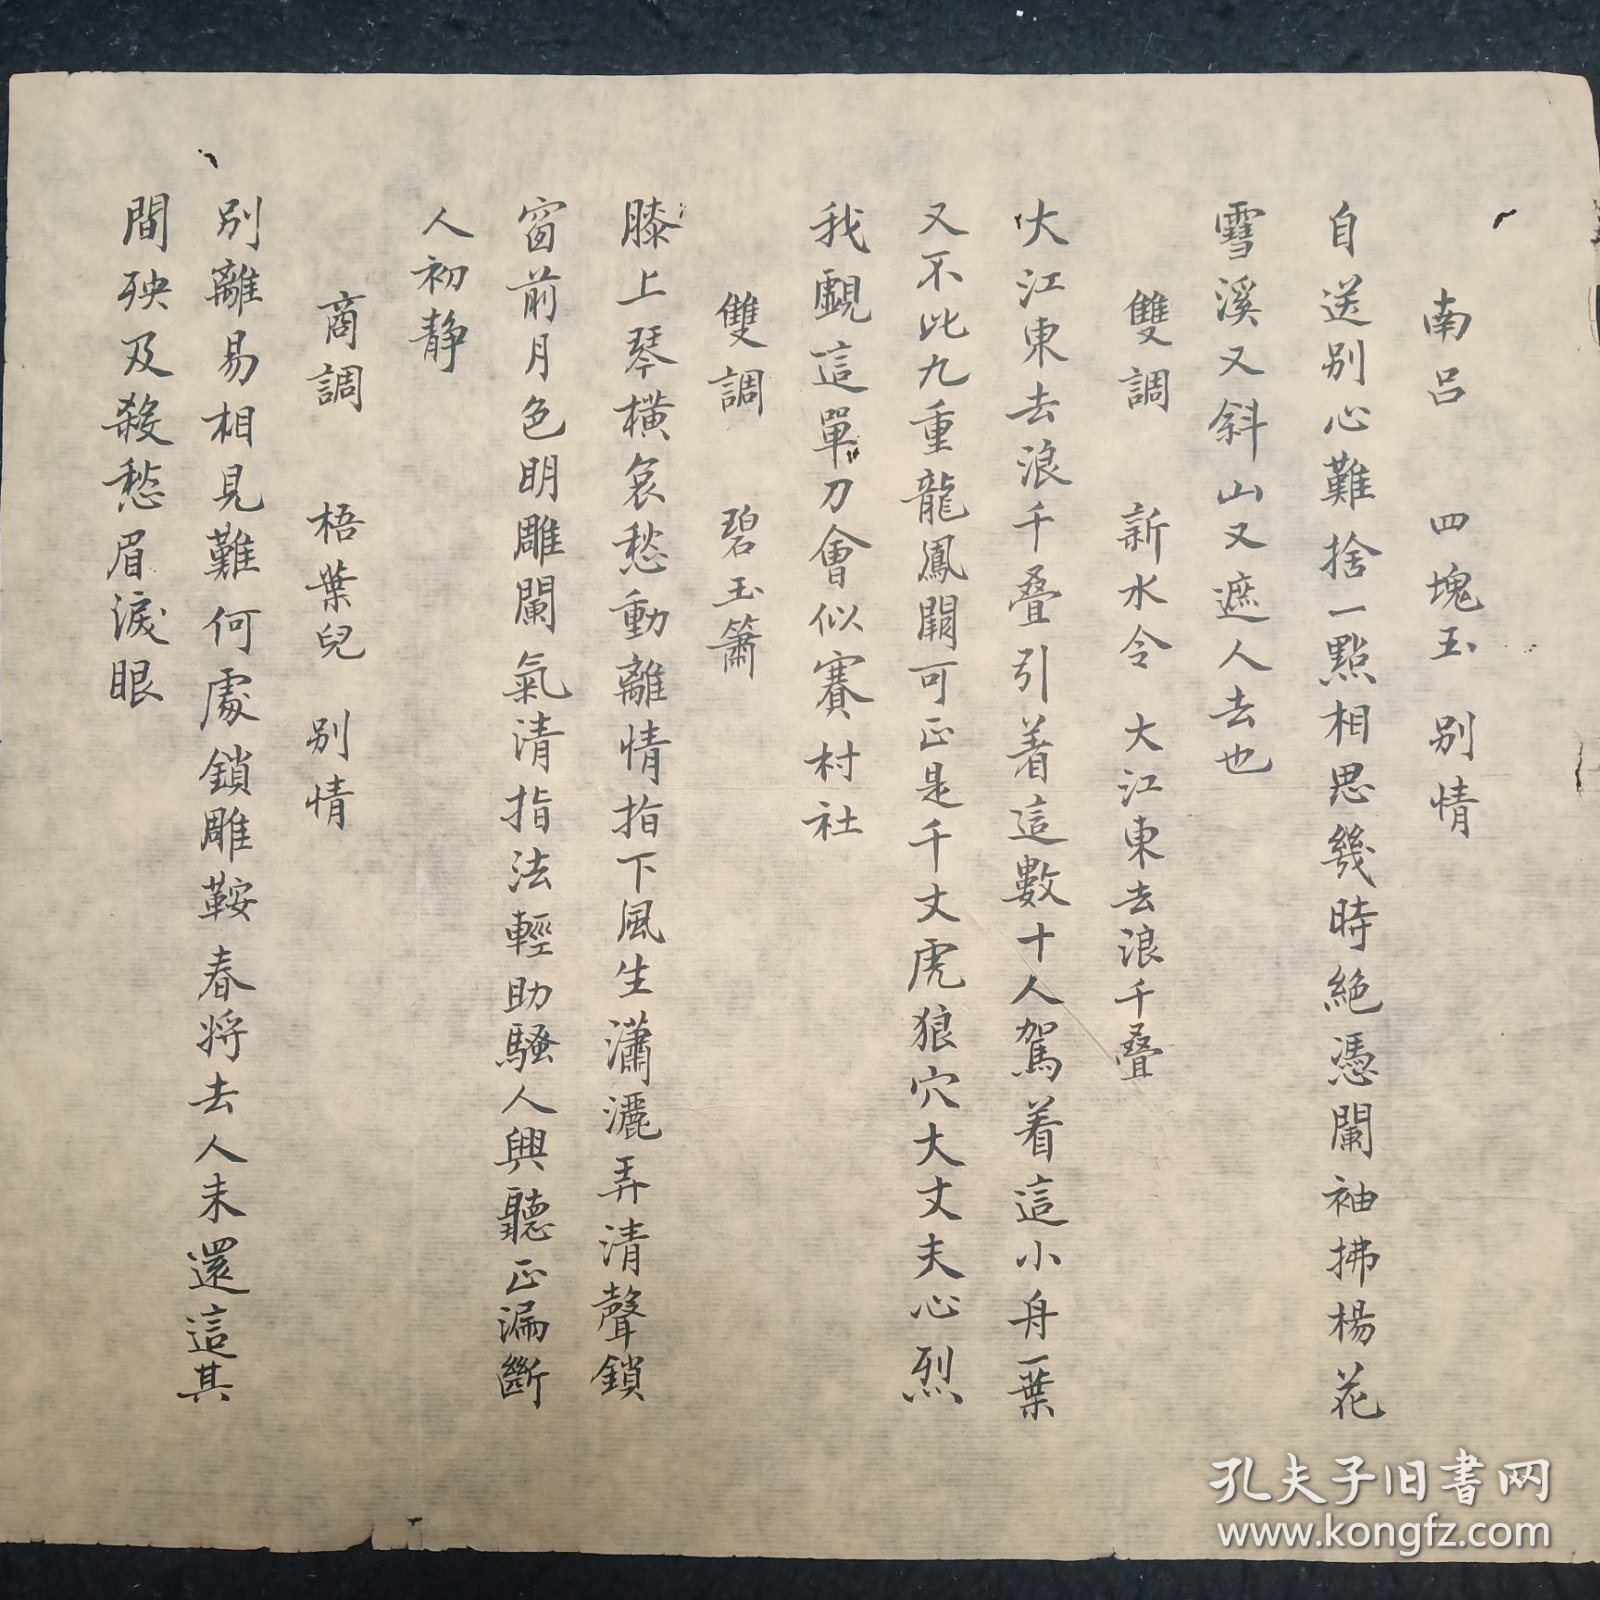 南呂　四塊玉　別情
自送别心難捨一點相思幾時絶憑闌袖拂楊花
雪溪又斜山又遮人去也
雙調　新水令　大江東去浪千疊
大江東去浪千疊引着這數十人駕着這小舟一葉
又不比九重龍鳳闕可正是千丈虎狼穴大丈夫心烈
我覷這單刀會似賽村社
雙調　碧玉簫
膝上琴橫哀愁動離情指下風生瀟灑弄清聲鎖
窗前月色明雕闌氣清指法輕助騷人興聽正漏斷
人初静
商調　梧葉兒　別情
別離易相見難何處鎖雕鞍春將去人未還這其
間殃及殺愁眉淚眼
孔夫子旧書网
www.kongfz.com